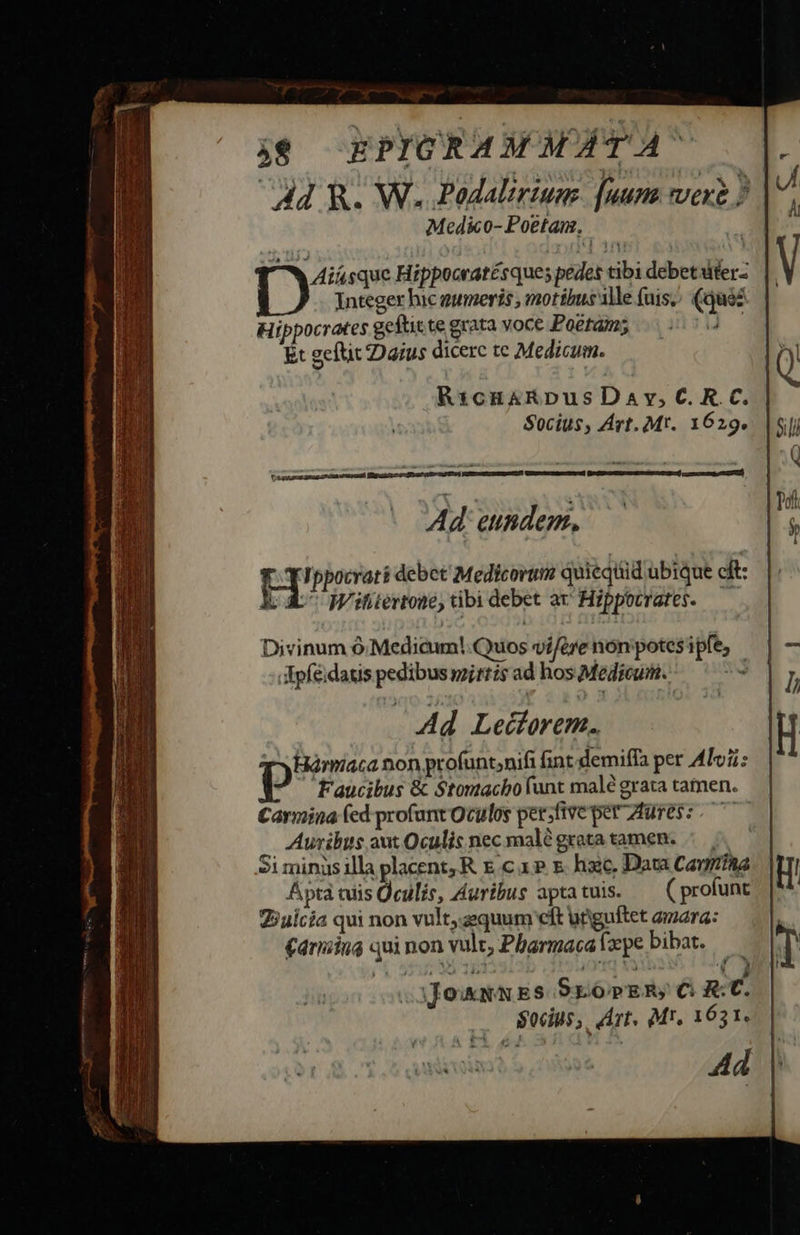 38 EPIGRAMMATA
Ad R. W. Podalirium ſuum verè
Medico-Poëtam.
DAiúsque Hippocratésques pedes tibi debet uter-
Integer hic numeris, motibus ille ſuis,
Hippocrates geſtit te grata voce Poëtam;
Et geſtit Daius dicere te Medicum.
RICHARDUS DAY, C. R. C.
Socius, Art. Mr. 1629.
Ad eundem.
HIppocrati debet Medicorum quicquid ubique eſt:
Withiertone, tibi debet at Hippocrates.
Divinum ô Medicum! Quos viſere non potes ipſe,
Ipſe datis pedibus mittis ad hos Medicum.
Ad Lectorem.
PHármaca non proſunt, niſi ſint demiſſa per Alvũ:
Faucibus & Stomacho ſunt malè grata tamen.
Carmina ſed proſunt Oculos per, ſive per Aures:
Auribus aut Oculis nec malè grata tamen.
Si minùs illa placent, RECIPE hæc. Data Carmina
Aptà tuis Oculis, Auribus apta tuis. (proſunt
Dulcia qui non vult, æquum eſt ut guſtet amara:
Carmina qui non vult, Pharmaca ſæpe bibat.
JOANNES SLOPER, C. R. C.
Socius, Art. Mr. 1631.
Ad